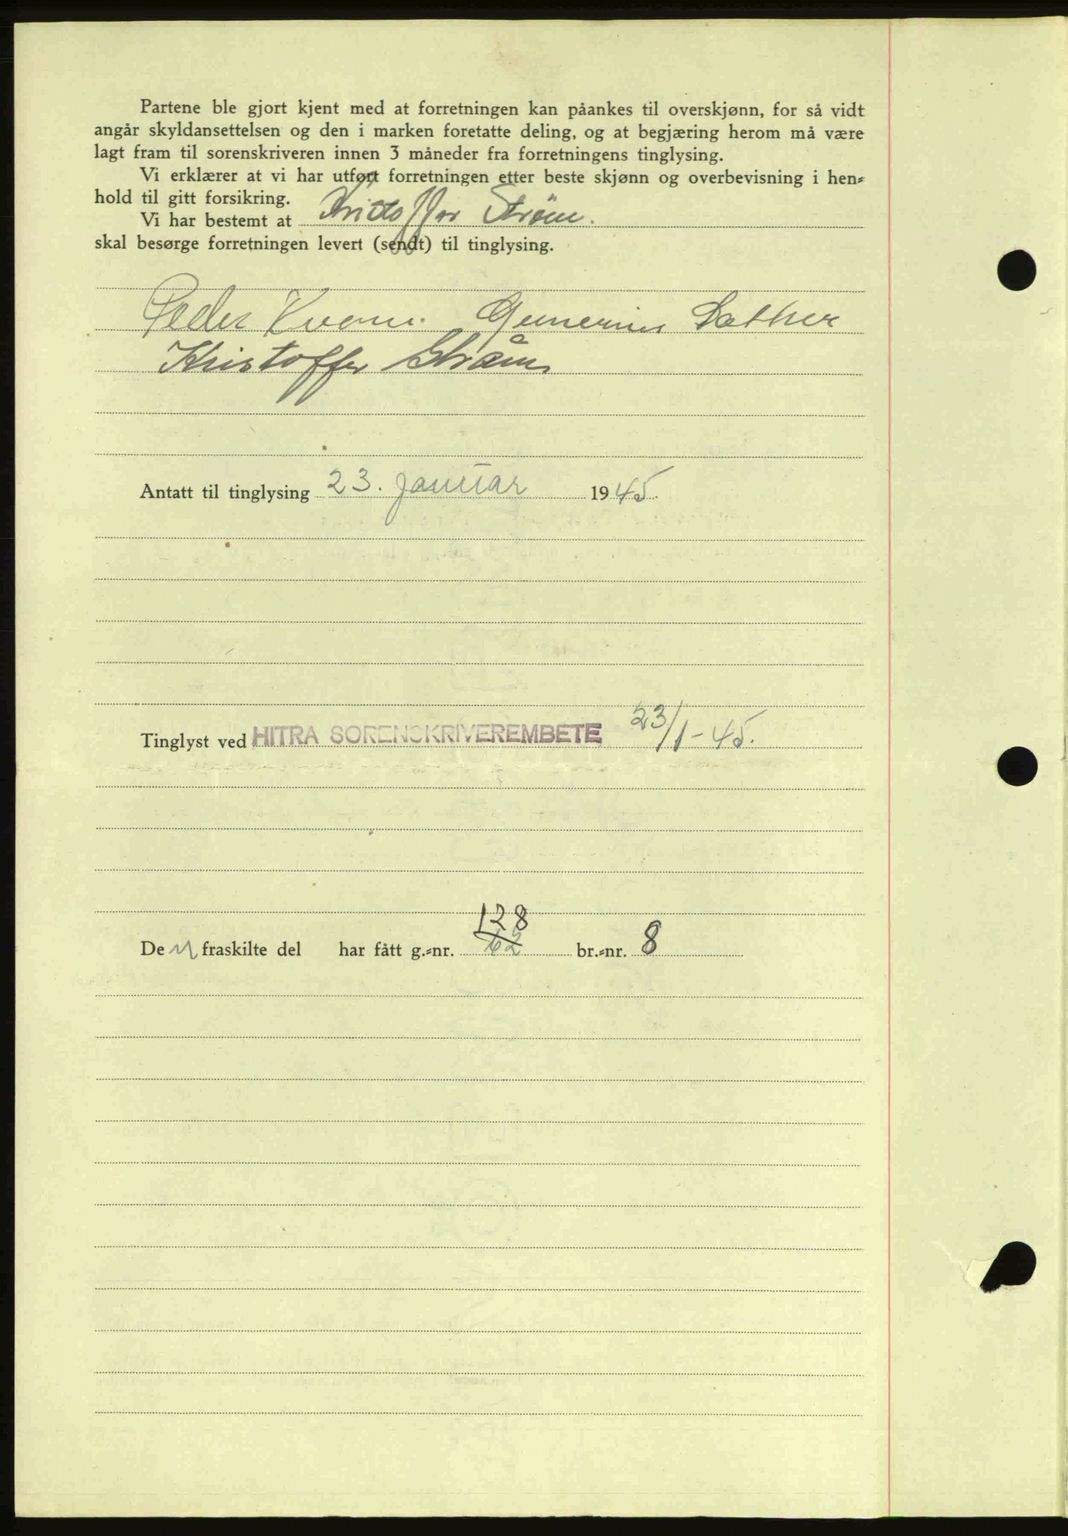 Partene ble gjort kjent med at forretningen kan påankes til overskjønn, for så vidt
angår skyldansettelsen og den i marken foretatte deling, og at begjæring herom må være
lagt fram til sorenskriveren innen 3 måneder fra forretningens tinglysing.
Vi erklærer at vi har utført forretningen etter beste skjønn og overbevisning i hen-
hold til gitt forsikring.
Vi har bestemt at Kristoffer Strøm.
skal besørge forretningen levert (sendt) til tinglysing.
Peder Kvam.
Kristoffer Strøm
Antatt til tinglysing 23. januar 1945.
Tinglyst ved HITRA SORENSKRIVEREMBETE 23/1-45.
128
De n fraskilte del har fått g.-nr. 62 br.-nr. 8